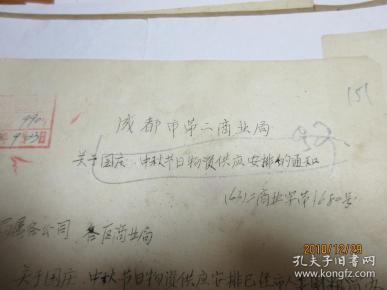 151
990
年9月23日
成都市第二商业局
关于国庆、中秋节日物资供应安排的通知
(63)二商业字第1680号
所属各公司 各区商业局
关于国庆、中秋节日物资供应安排已经
2010/12/29
孔夫子旧书网